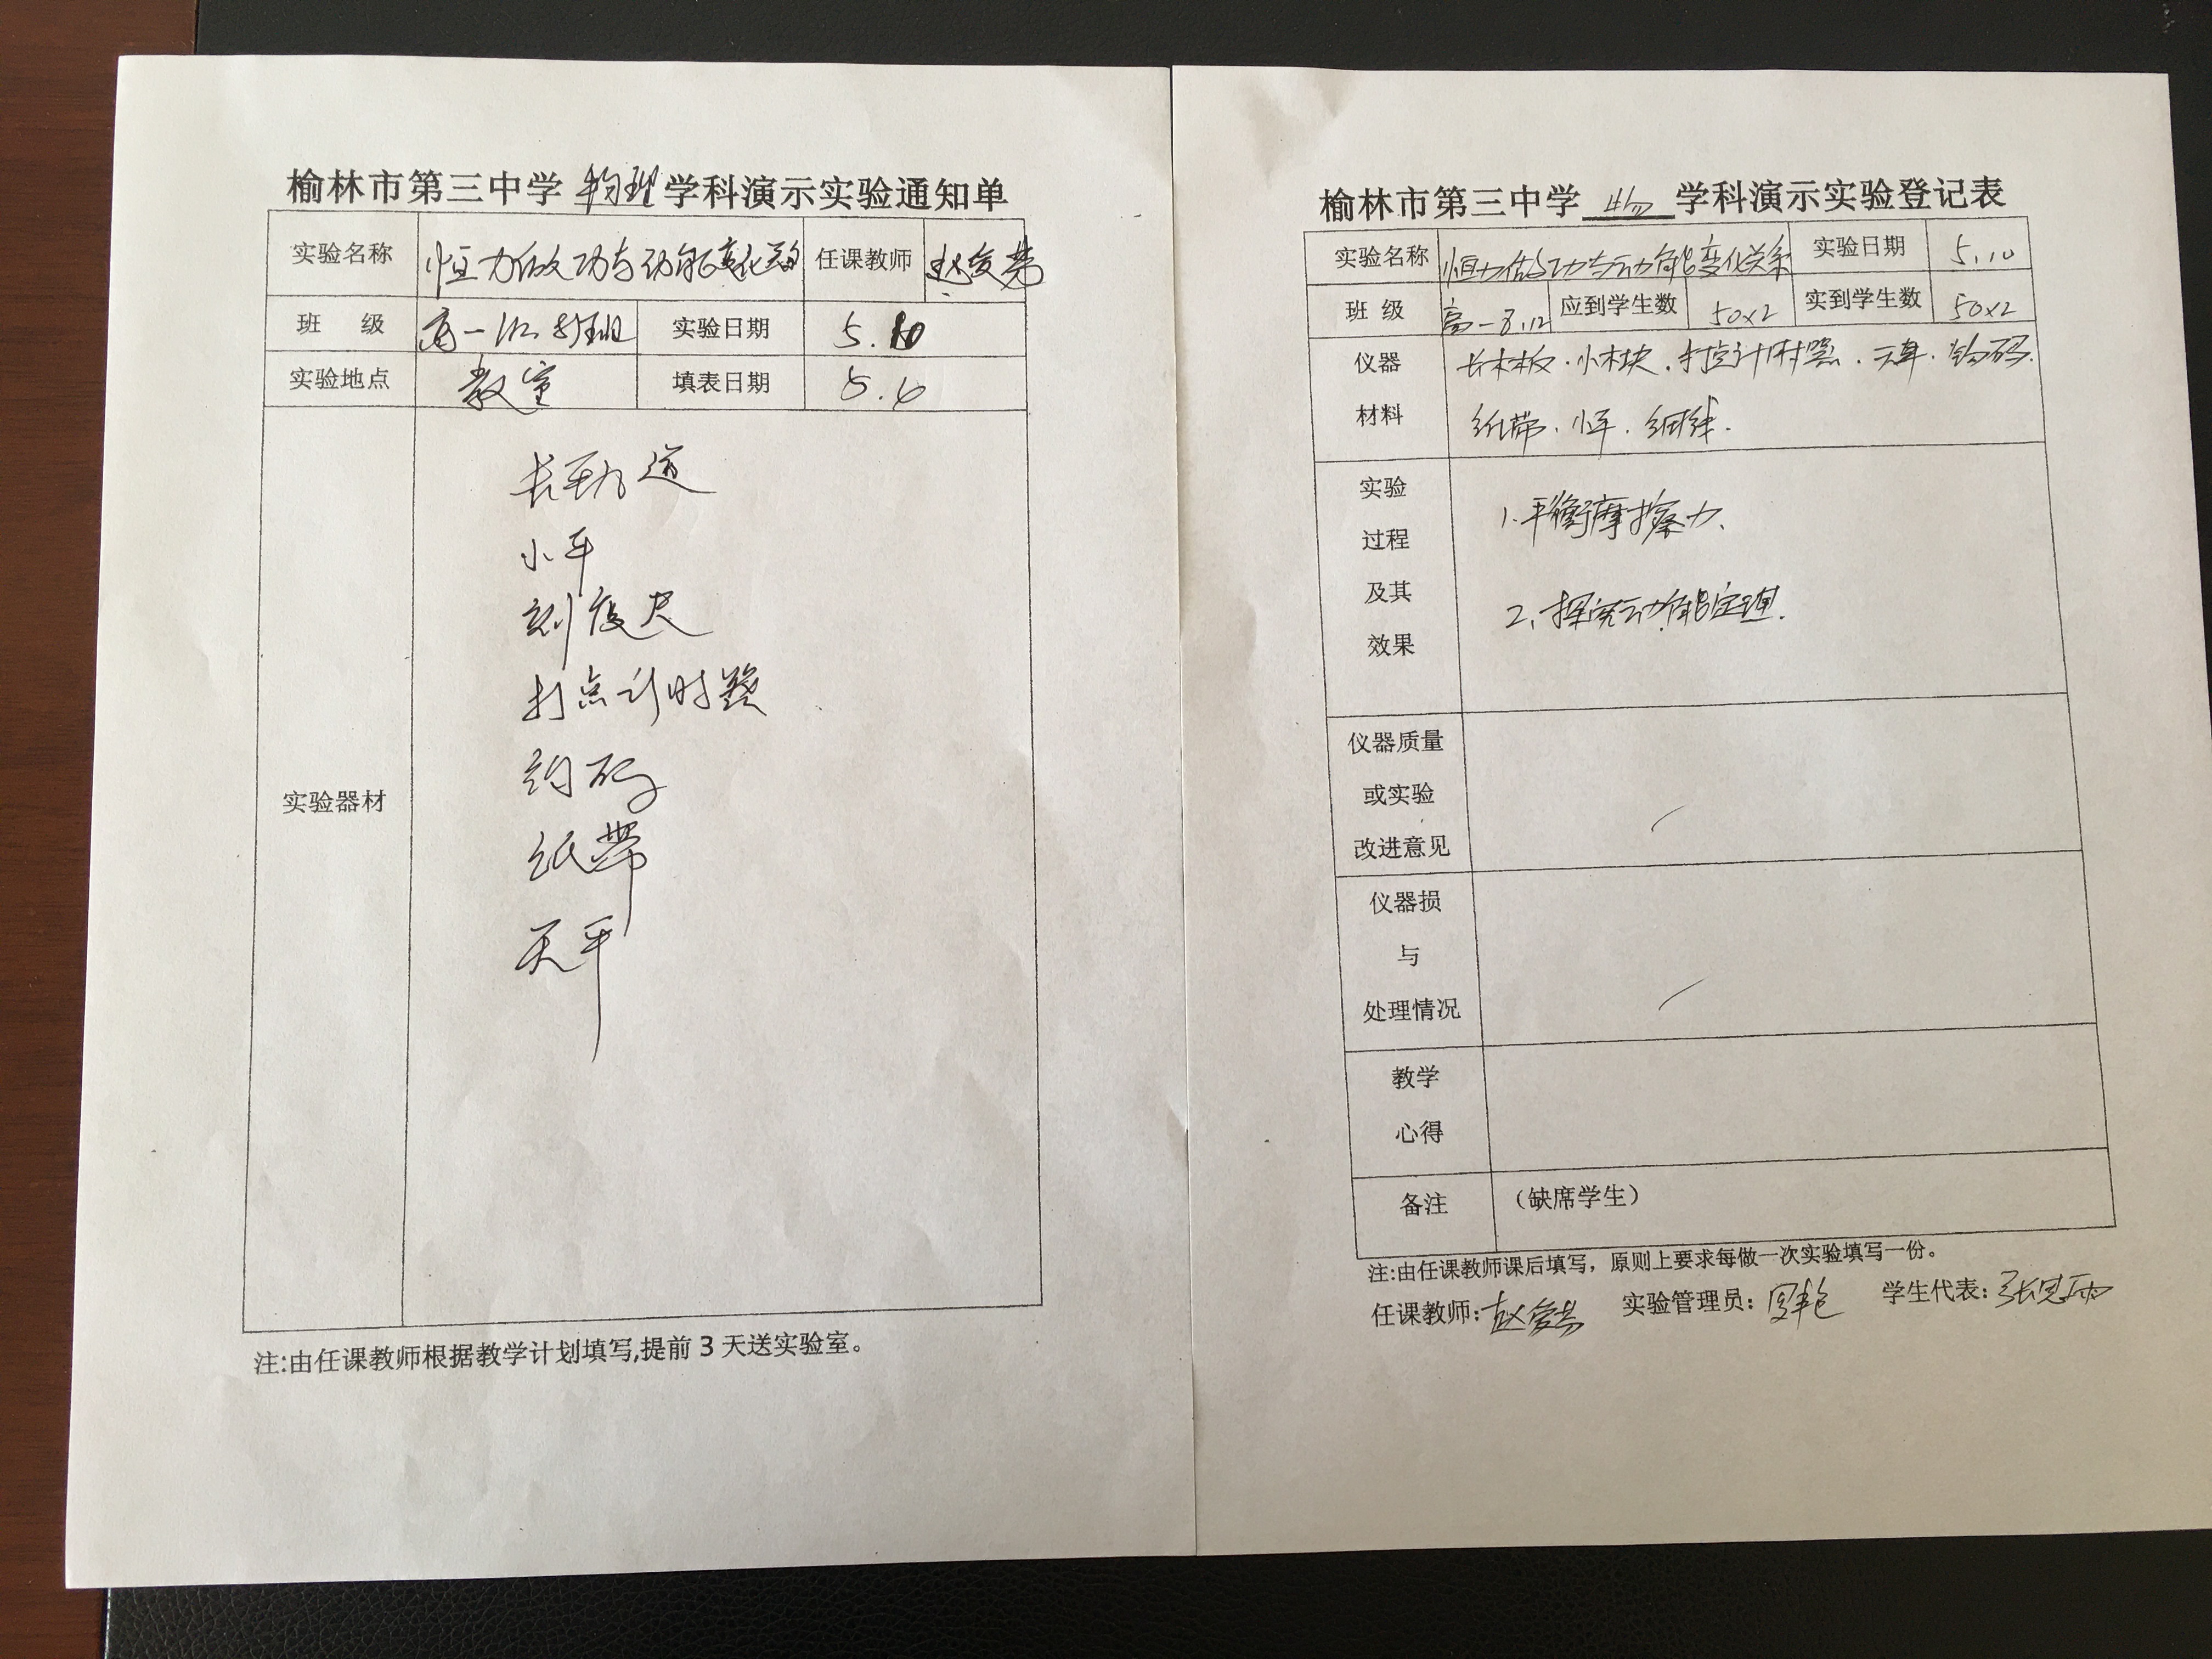 榆林市第三中学 物理 学科演示实验通知单
实验名称 恒力做功与动能变化关系 任课教师
班 级 高一 实验日期 5.10
实验地点 教室 填表日期 5.6
实验器材
长 道
小车
刻度尺
打点计时器
钩码
纸带
天平
注:由任课教师根据教学计划填写,提前 3 天送实验室。
榆林市第三中学 物 学科演示实验登记表
实验名称 恒力做功与动能变化关系 实验日期 5.10
班 级 高一8.12 应到学生数 50×2 实到学生数 50×2
仪器 长木板.小木块.打点计时器.天平.钩码.
材料 纸带.小车.细线.
实验
过程
及其
效果
1.平衡摩擦力、
2、探究动能定理.
仪器质量
或实验
改进意见
仪器损
与
处理情况
教学
心得
备注 （缺席学生）
注:由任课教师课后填写，原则上要求每做一次实验填写一份。
任课教师: 实验管理员: 学生代表: